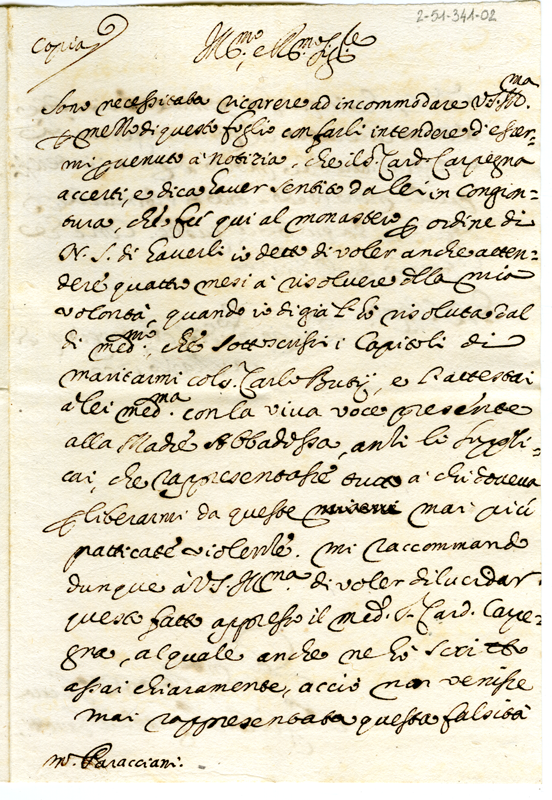 2-51-341-02
Copia
Ill.mo e R.mo Sig.re
Sono necessitata ricorrere ad incommodare VS. Ill.ma
p mezzo di questo foglio con farli intendere d'esser=
mi pervenuto à notitia, che il S. Card. Carpegna
accerti, e dica haver sentito da lei in congion=
tura, che fù qui al monastero p ordine di
N. S. di haverli io detto di voler anche atten=
dere quattro mesi à risolvere della mia
volontà, quando io di già l'hò risoluta dal
di med.mo, che sottoscrissi i Capitoli di
maritarmi col S. Carlo Buty, e l'attestai
à lei med.ma con la viva voce presente
alla Madre Abbadessa, anzi la suppli=
cai, che rappresentasse tutto à chi doveva
p liberarmi da queste mai più
patticate violenze. mi raccommando
dunque à VS. Ill.ma di voler dilucidar
questo fatto appresso il med. S. Card. Carpe=
gna, al quale anche ne hò scritto
assai chiaramente, acciò non venisse
mai rappresentata questa falsità
m.r Caracciani.